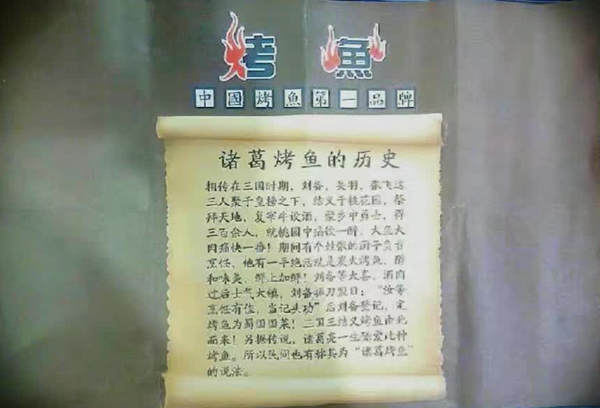 烤魚
中國烤魚第一品牌
诸葛烤鱼的历史
相传在三国时期，刘备，关羽，张飞这
三人聚于皇榜之下，结义于桃花园，祭
拜天地，复宰牛设酒，聚乡中勇士，得
三百余人，就桃园中痛饮一醉，大鱼大
肉痛快一番！期间有个姓张的厨子负责
烹饪，他有一手绝活就是炭火烤鱼，醇
和味美，鲜上加鲜！刘备等大喜，酒肉
过后士气大振，刘备拍刀盟曰：“汝等
烹饪有位，当记头功”后刘备登记，定
烤鱼为蜀国国菜！三国三结义烤鱼由此
而来！另据传说，诸葛亮一生酷爱此种
烤鱼。所以民间也有称其为“诸葛烤鱼”
的说法。